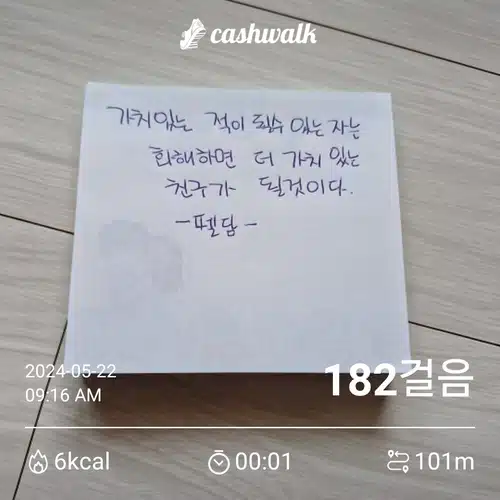 cashwalk
가치있는 적이 될수 있는 자는
화해하면 더 가치 있는
친구가 될것이다.
-펠담-
2024-05-22
09:16 AM
182걸음
6kcal
00:01
101m